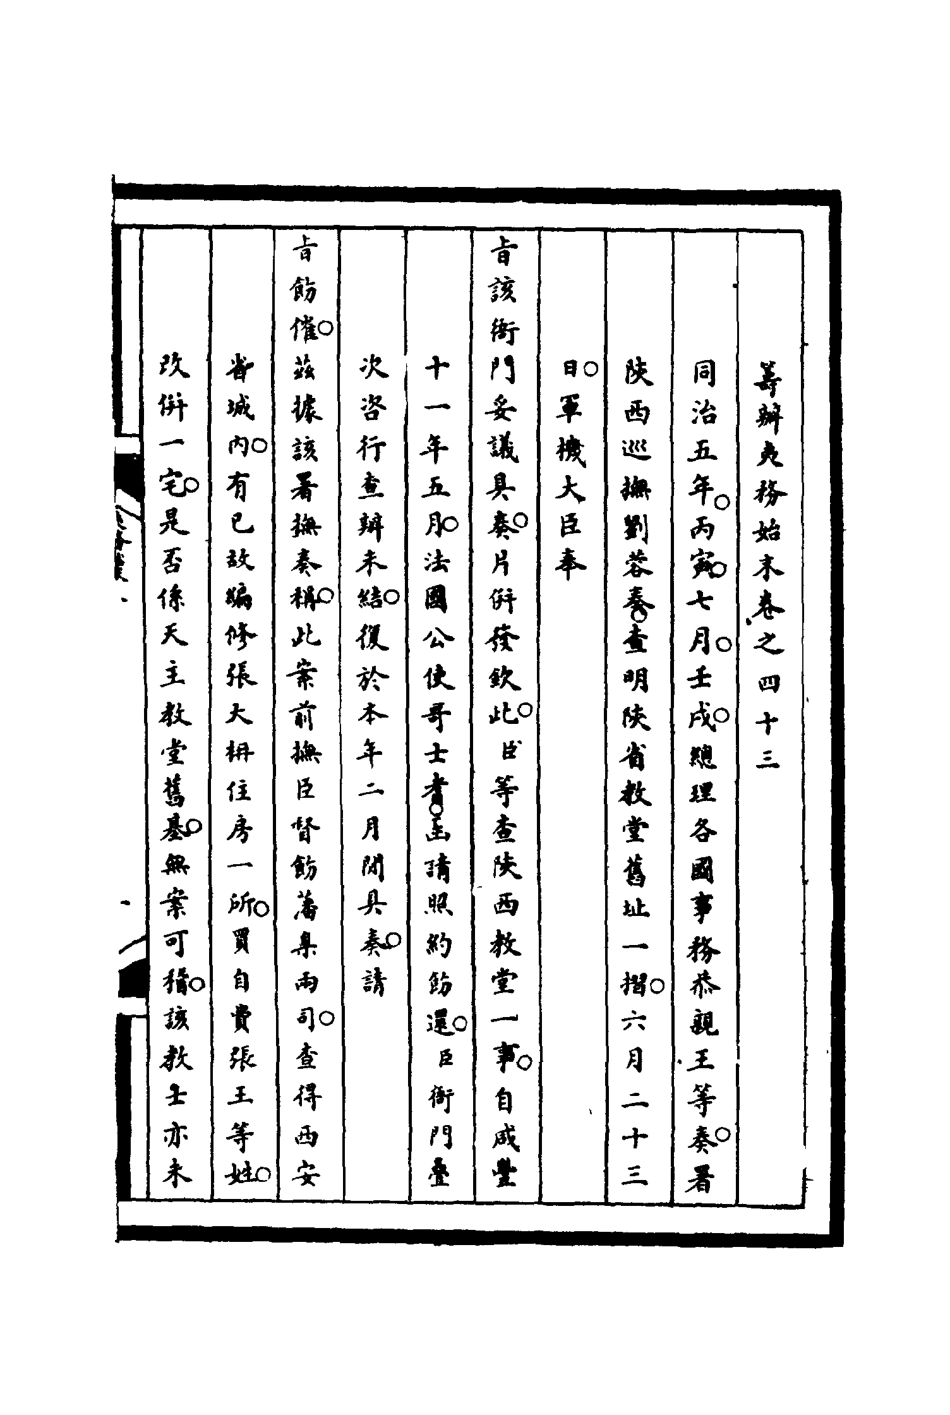 籌辦夷務始末卷之四十三
同治五年。丙寅。七月。壬戌。總理各國事務恭親王等奏。署
陝西巡撫劉蓉奏。查明陝省教堂舊址一摺。六月二十三
日。軍機大臣奉
旨該衙門妥議具奏。片併發欽此。臣等查陝西教堂一事。自咸豐
十一年五月。法國公使哥士耆。函請照約飭還。臣衙門疊
次咨行查辦未結。復於本年二月間具奏。請
旨飭催。茲據該署撫奏稱。此案前撫臣督飭藩臬兩司。查得西安
省城內。有已故編修張大枬住房一所。買自費張王等姓。
改併一宅。是否係天主教堂舊基。無案可稽。該教士亦未